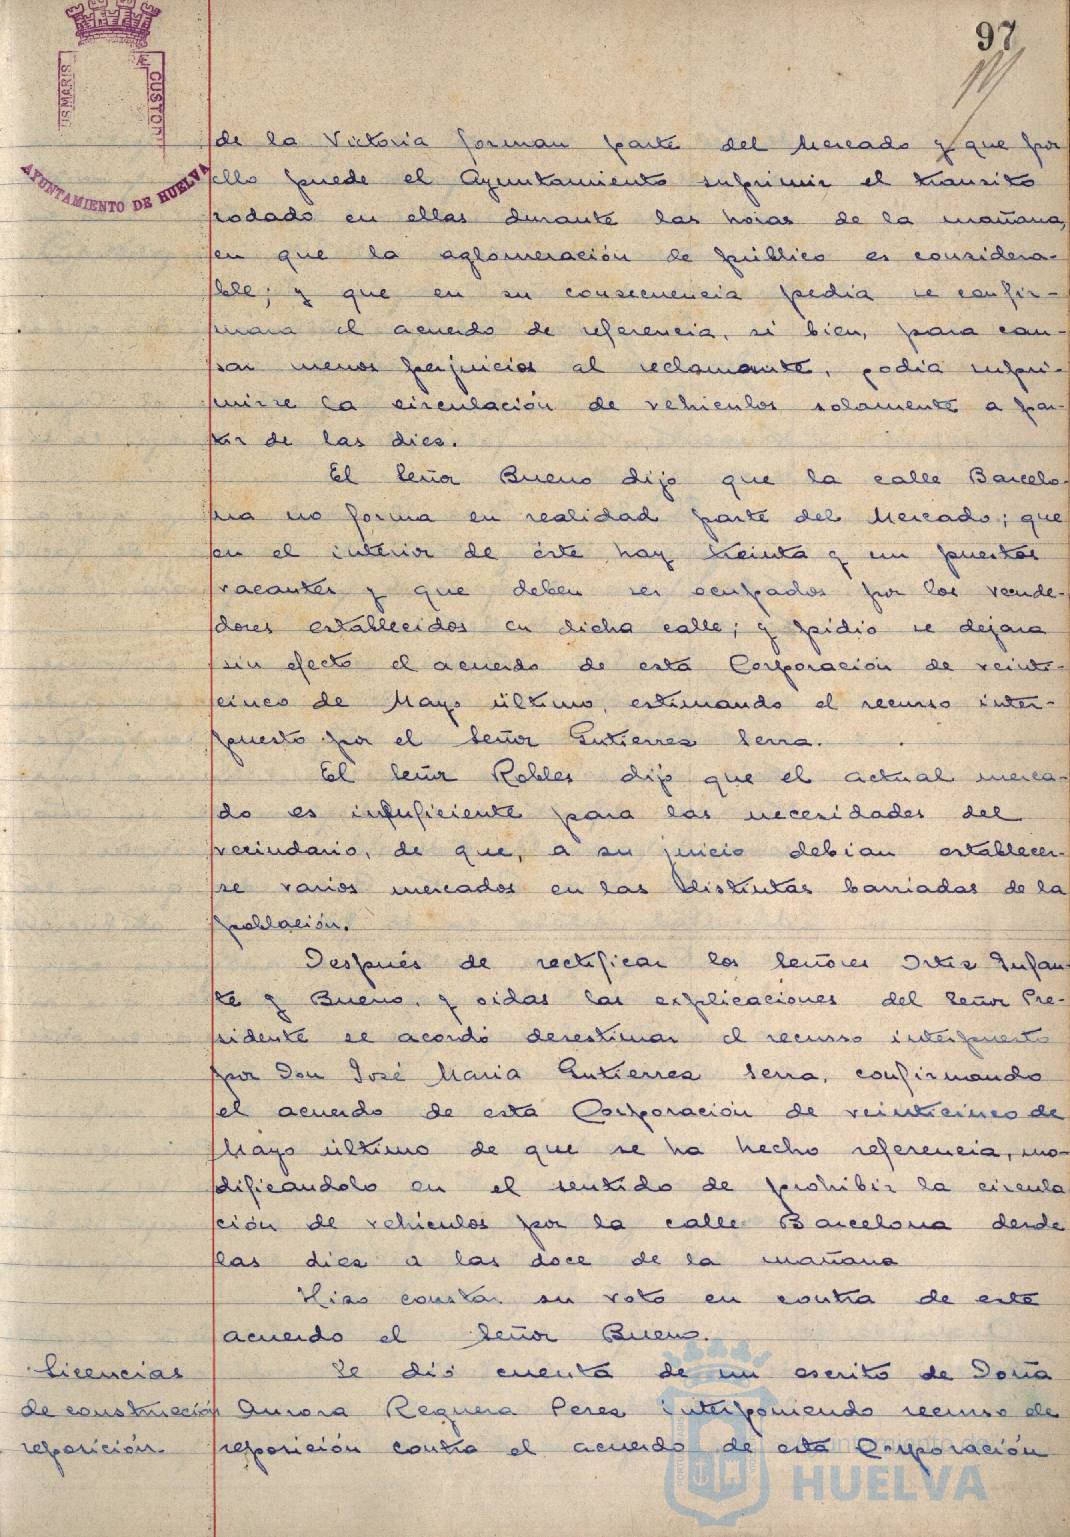 97
US MARIS
Æ CUSTO
AYUNTAMIENTO DE HUELVA
de la Victoria forman parte del Mercado y que por
ello puede el Ayuntamiento suprimir el tránsito
rodado en ellas durante las horas de la mañana,
en que la aglomeración de público es considera-
ble; y que en su consecuencia pedía se confir-
mara el acuerdo de referencia, si bien, para cau-
sar menos perjuicios al reclamante, podía supri-
mirse la circulación de vehículos solamente a par-
tir de las diez.
El Señor Bueno dijo que la calle Barcelo-
na no forma en realidad parte del Mercado; que
en el interior de éste hay treinta y un puestos
vacantes y que deben ser ocupados por los vende-
dores establecidos en dicha calle; y pidió se dejara
sin efecto el acuerdo de esta Corporación de veinti-
cinco de Mayo último, estimando el recurso inter-
puesto por el Señor Gutierrez Serra.
El Señor Robles dijo que el actual merca-
do es insuficiente para las necesidades del
vecindario, de que, a su juicio debían establecer-
se varios mercados en las distintas barriadas de la
población.
Después de rectificar los Señores Ortiz Infan-
te y Bueno, y oidas las explicaciones del Señor Pre-
sidente se acordó desestimar el recurso interpuesto
por Don José Maria Gutierrez Serra, confirmando
el acuerdo de esta Corporación de veinticinco de
Mayo último de que se ha hecho referencia, mo-
dificandolo en el sentido de prohibir la circula
ción de vehículos por la calle Barcelona desde
las diez a las doce de la mañana
Hizo constar su voto en contra de este
acuerdo el Señor Bueno.
Licencias de construcción reposición.
Se dió cuenta de un escrito de Doña
Aurora Reguera Perez interponiendo recurso de
reposición contra el acuerdo de esta Corporación
Ayuntamiento de
HUELVA